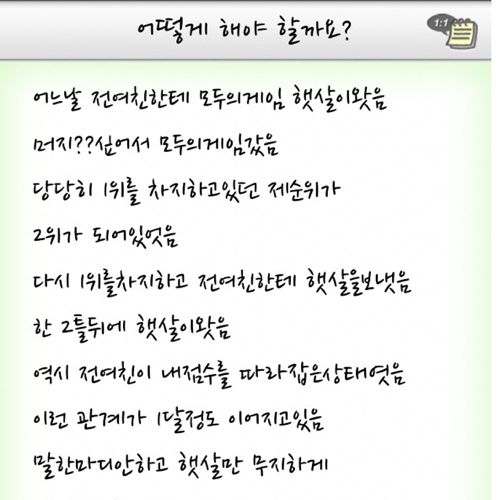 어떻게 해야 할까요?
1:1
어느날 전여친한테 모두의게임 햇살이왓음
머지??싶어서 모두의게임갔음
당당히 1위를 차지하고있던 제순위가
2위가 되어있엇음
다시 1위를차지하고 전여친한테 햇살을보냇음
한 2틀뒤에 햇살이왓음
역시 전여친이 내점수를 따라잡은상태엿음
이런 관계가 1달정도 이어지고있음
말한마디안하고 햇살만 무지하게